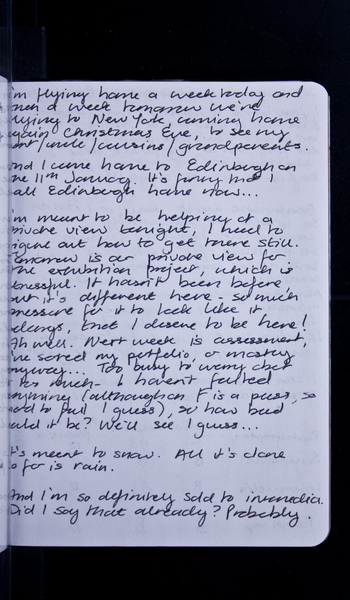 I'm flying home a week today and
then a week tomorrow we're
flying to New York, coming home
again Christmas Eve, to see my
aunt/uncle/cousins/grandparents.
And I come home to Edinburgh on
the 11th January. It's funny that I
call Edinburgh home now...
I'm meant to be helping at a
private view tonight, I need to
figure out how to get there still.
Tomorrow is our private view for
the exhibition project, which is
stressful. It hasn't been before,
but it's different here - so much
pressure for it to look like it
belongs, that I deserve to be here!
Ah well. Next week is assessment,
I've sorted my portfolio, or mostly,
anyway... Too busy to worry about
it too much - I haven't failed
anything (although an F is a pass, so
hard to fail I guess), so how bad
could it be? We'll see I guess...
It's meant to snow. All it's done
so far is rain.
And I'm so definitely sold to intermedia.
Did I say that already? Probably.